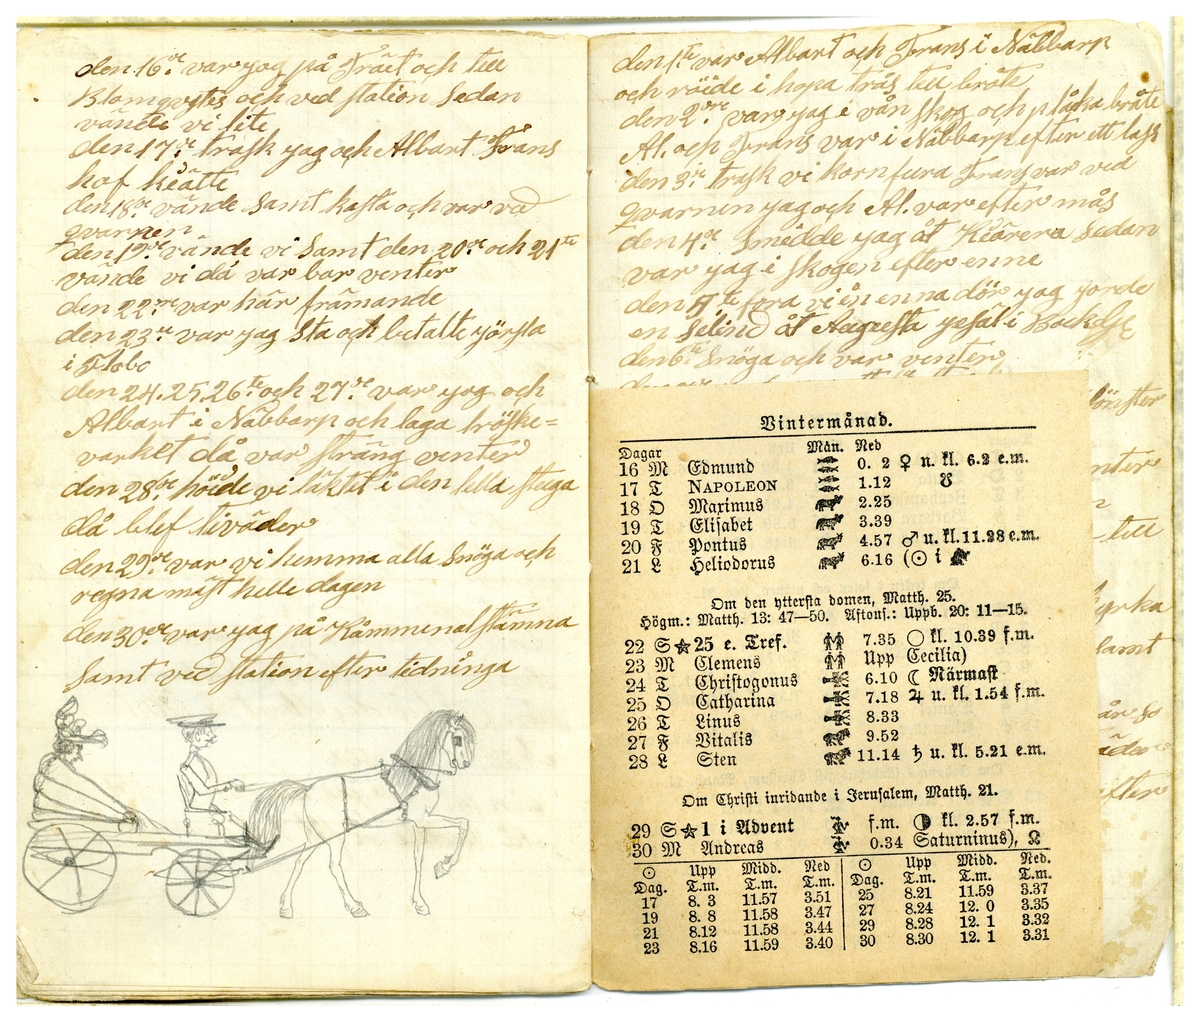 den 16de var jag på Träet och till
Blomqvstes och ved station Sedan
vände vi lite
den 17de trask jag och Albart Frans
haf kiätte
den 18de vände Samt kasta och var ved
qvarnen
den 19de vände vi Samt den 20de och 21te
vände vi då var bar venter
den 22ne var här främande
den 23ne var jag Sta och betalte
i Flobo
den 24.25.26te och 27de var jag och
Albart i Näbbarp och laga tröske=
varket då var sträng venter
den 28de höide vi taktet i den lilla stuga
då blef tiväder
den 29de var vi hemma alla Snöga och
regna mäst helle dagen
den 30de var jag på Kåmmenalstämna
Samt ved station efter tidninga
den 1te var Albart och Frans i Näbbarp
och röide i hopa träs till bråte
den 2dre var jag i vån Skog och plåcka bråte
Al. och Frans var i Näbbarp efter ett lass
den 3je trask vi kornfura Frans var ved
qvarnen jag och Al. var efter mås
den 4de Smidde jag åt Kiärera Sedan
var jag i skogen efter enne
den 5te fora vi in enna dör jag jorde
en Selined åt Augusta
den 6te Snöga och var venter
Vintermånad.
Dagar Mån. Ned
16 M Edmund 0. 2 ♀ n. kl. 6.2 e.m.
17 T NAPOLEON 1.12 ☋
18 O Maximus 2.25
19 T Elisabet 3.39
20 F Pontus 4.57 ♂ u. kl. 11.28 e.m.
21 L Heliodorus 6.16 (☉ i
Om den yttersta domen, Matth. 25.
Högm.: Matth. 13: 47—50. Aftons.: Uppb. 20: 11—15.
22 S ★ 25 e. Tref. 7.35 ○ kl. 10.39 f.m.
23 M Clemens Upp Cecilia)
24 T Christogonus 6.10 ☾ Närmast
25 O Catharina 7.18 ♃ u. kl. 1.54 f.m.
26 T Linus 8.33
27 F Vitalis 9.52
28 L Sten 11.14 ♄ u. kl. 5.21 e.m.
Om Christi inridande i Jerusalem, Matth. 21.
29 S ★ 1 i Advent f.m. ◑ kl. 2.57 f.m.
30 M Andreas 0.34 Saturninus), ☊
☉ Upp Midd. Ned ☉ Upp Midd. Ned.
Dag. T.m. T.m. T.m. Dag. T.m. T.m. T.m.
17 8. 3 11.57 3.51 25 8.21 11.59 3.37
19 8. 8 11.58 3.47 27 8.24 12. 0 3.35
21 8.12 11.58 3.44 29 8.28 12. 1 3.32
23 8.16 11.59 3.40 30 8.30 12. 1 3.31